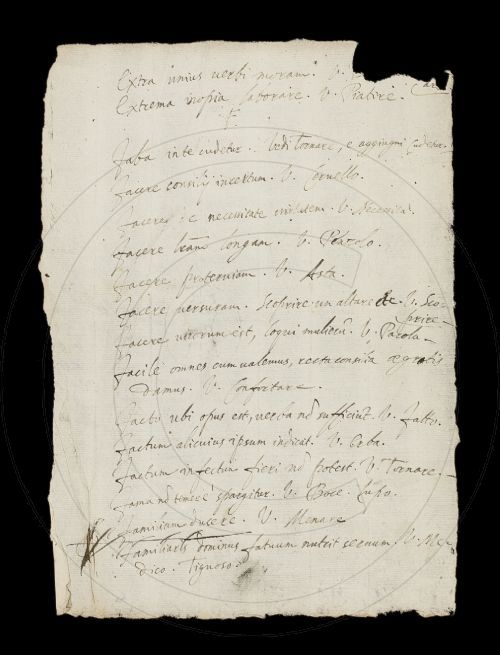 Extra unius verbi moram. V.
Extrema inopia laborare. V. Patire.
F
Faba in te cudetur. Vedi Tornare, e aggiugni cudetur.
Facere consilij incertum. V. Cervello.
Facere è necessitate virtutem. V. Necessità.
Facere litteram longam. V.
Facere proterviam. V. Asta.
Facere versuram. Scoprire un altare &c. V. Sco-
prire
Facere virorum est, loqui mulierũ. V. Parola
Facile omnes cum valemus, recta consilia ægrotis
damus. V. Confortare.
Facto ubi opus est, verba nõ sufficiũt. V. Fatto.
Factum alicuius ipsum indicat. V.
Factum infectum fieri nõ potest. V. Tornare.
Fama nõ temerè spargitur. V. Voce. Lupo.
Familiam ducere. V. Menare
Familiaris dominus fatuum nutrit servum. V. Me-
dico. Tignoso.